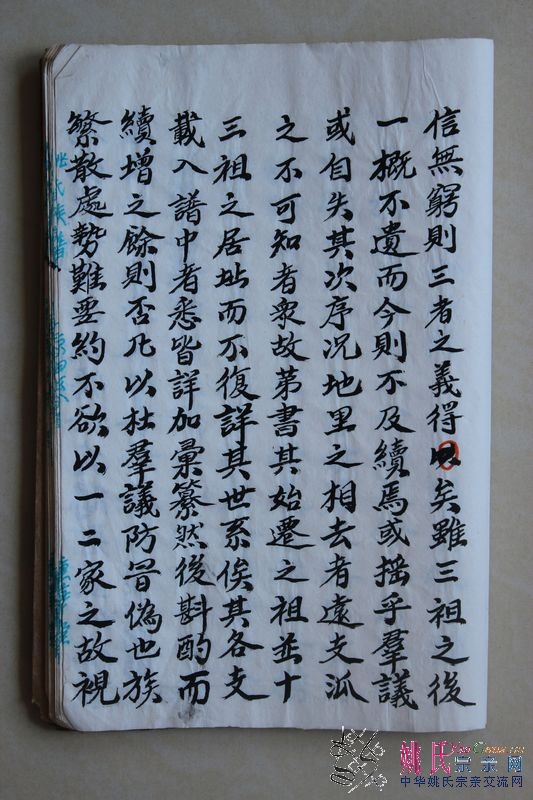 信無窮則三者之義得矣雖三祖之後
一概不遺而今則不及續焉或搖乎羣議
或自失其次序况地里之相去者遠支派
之不可知者衆故苐書其始遷之祖並十
三祖之居址而不復詳其世系俟其各支
載入譜中者悉皆詳加彙纂然後斟酌而
續增之餘則否凡以杜羣議防冒偽也族
繁散處勢難要約不欲以一二家之故視
姚氏宗亲网
中华姚氏宗亲交流网